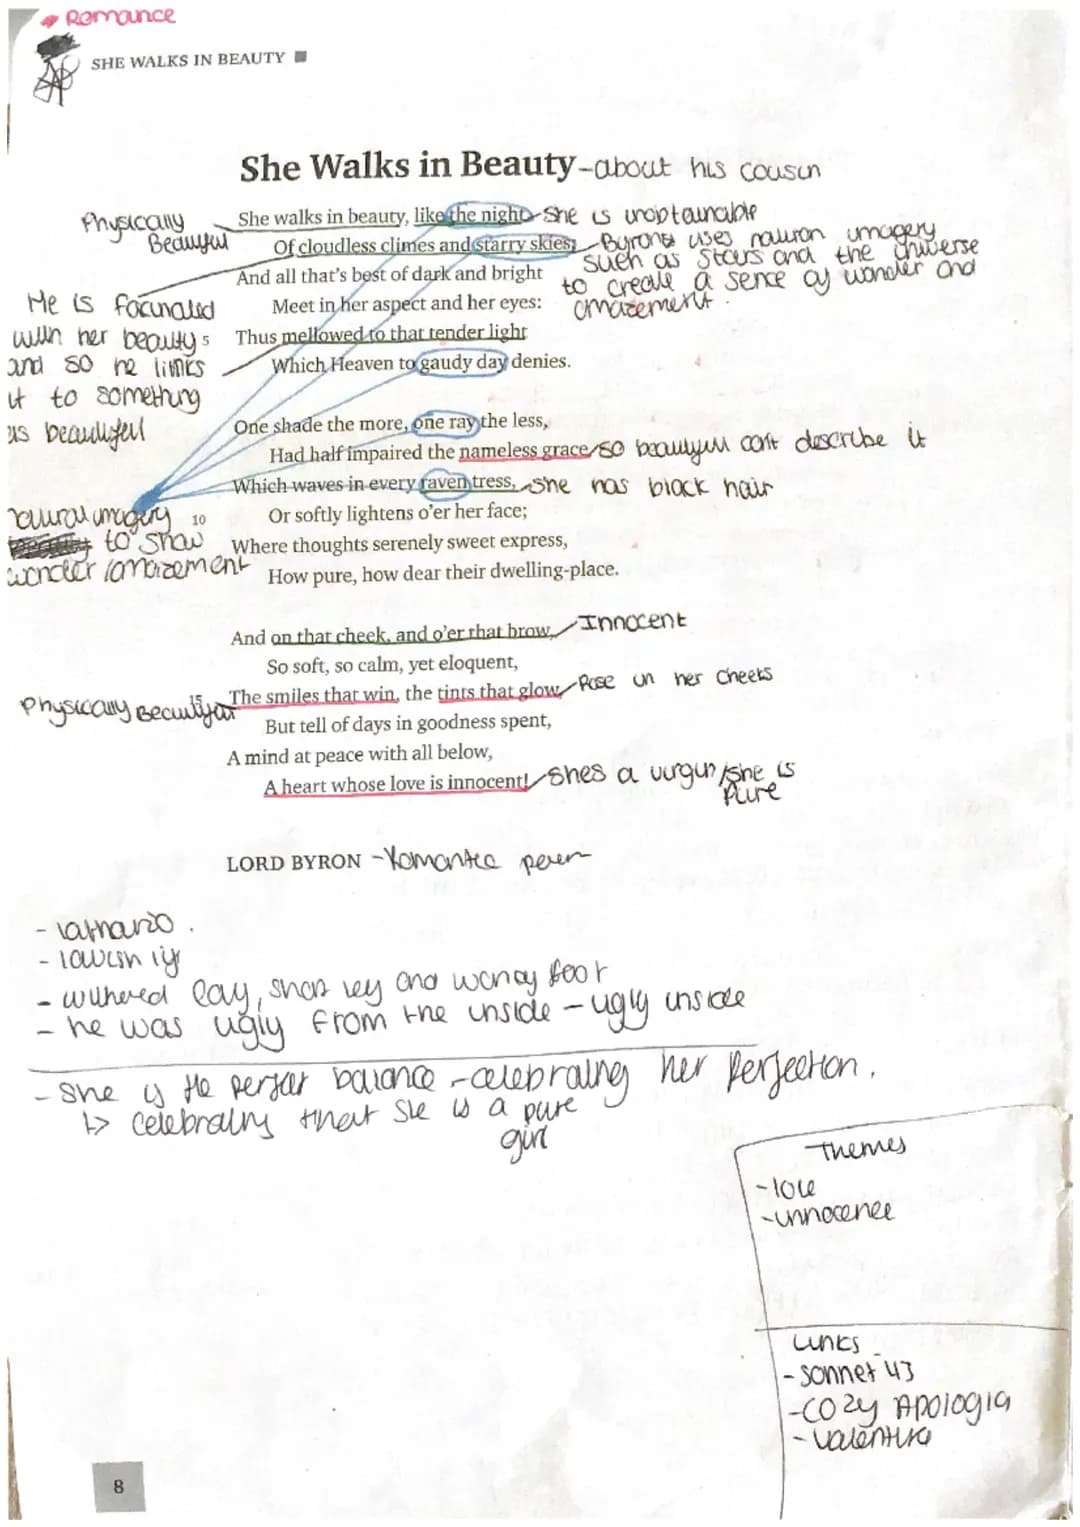 Romance
SHE WALKS IN BEAUTY
She Walks in Beauty -about his cousin
Physically
Beautiful
She walks in beauty, like the night - She is unobtainable
Of cloudless climes and starry skies; Byron uses imagery
such as stars and the universe
And all that's best of dark and bright to create a sence of wonder and
Meet in her aspect and her eyes: amazement.
He is
with her beauty 5 Thus mellowed to that tender light
and so he links Which Heaven to gaudy day denies.
it to something
as beautiful
One shade the more, one ray the less,
Had half impaired the nameless grace so beautiful cant describe it
Which waves in every raven tress, she has black hair
natural imagery 10 Or softly lightens o'er her face;
to show Where thoughts serenely sweet express,
wonder /amazement How pure, how dear their dwelling-place.
And on that cheek, and o'er that brow, Innocent
So soft, so calm, yet eloquent,
Physically Beautiful 15 The smiles that win, the tints that glow, Rose in her cheeks
But tell of days in goodness spent,
A mind at peace with all below,
A heart whose love is innocent! shes a virgin/she is
pure
LORD BYRON -
-
-
- withered and foot
- he was ugly from the inside - ugly inside
- She is the perfect balance - celebrating her Perfection.
↳ celebrating that she is a pure
girl
Themes
- love
- innocence
Links
- Sonnet 43
- COzy Apologia
- Valentine
8